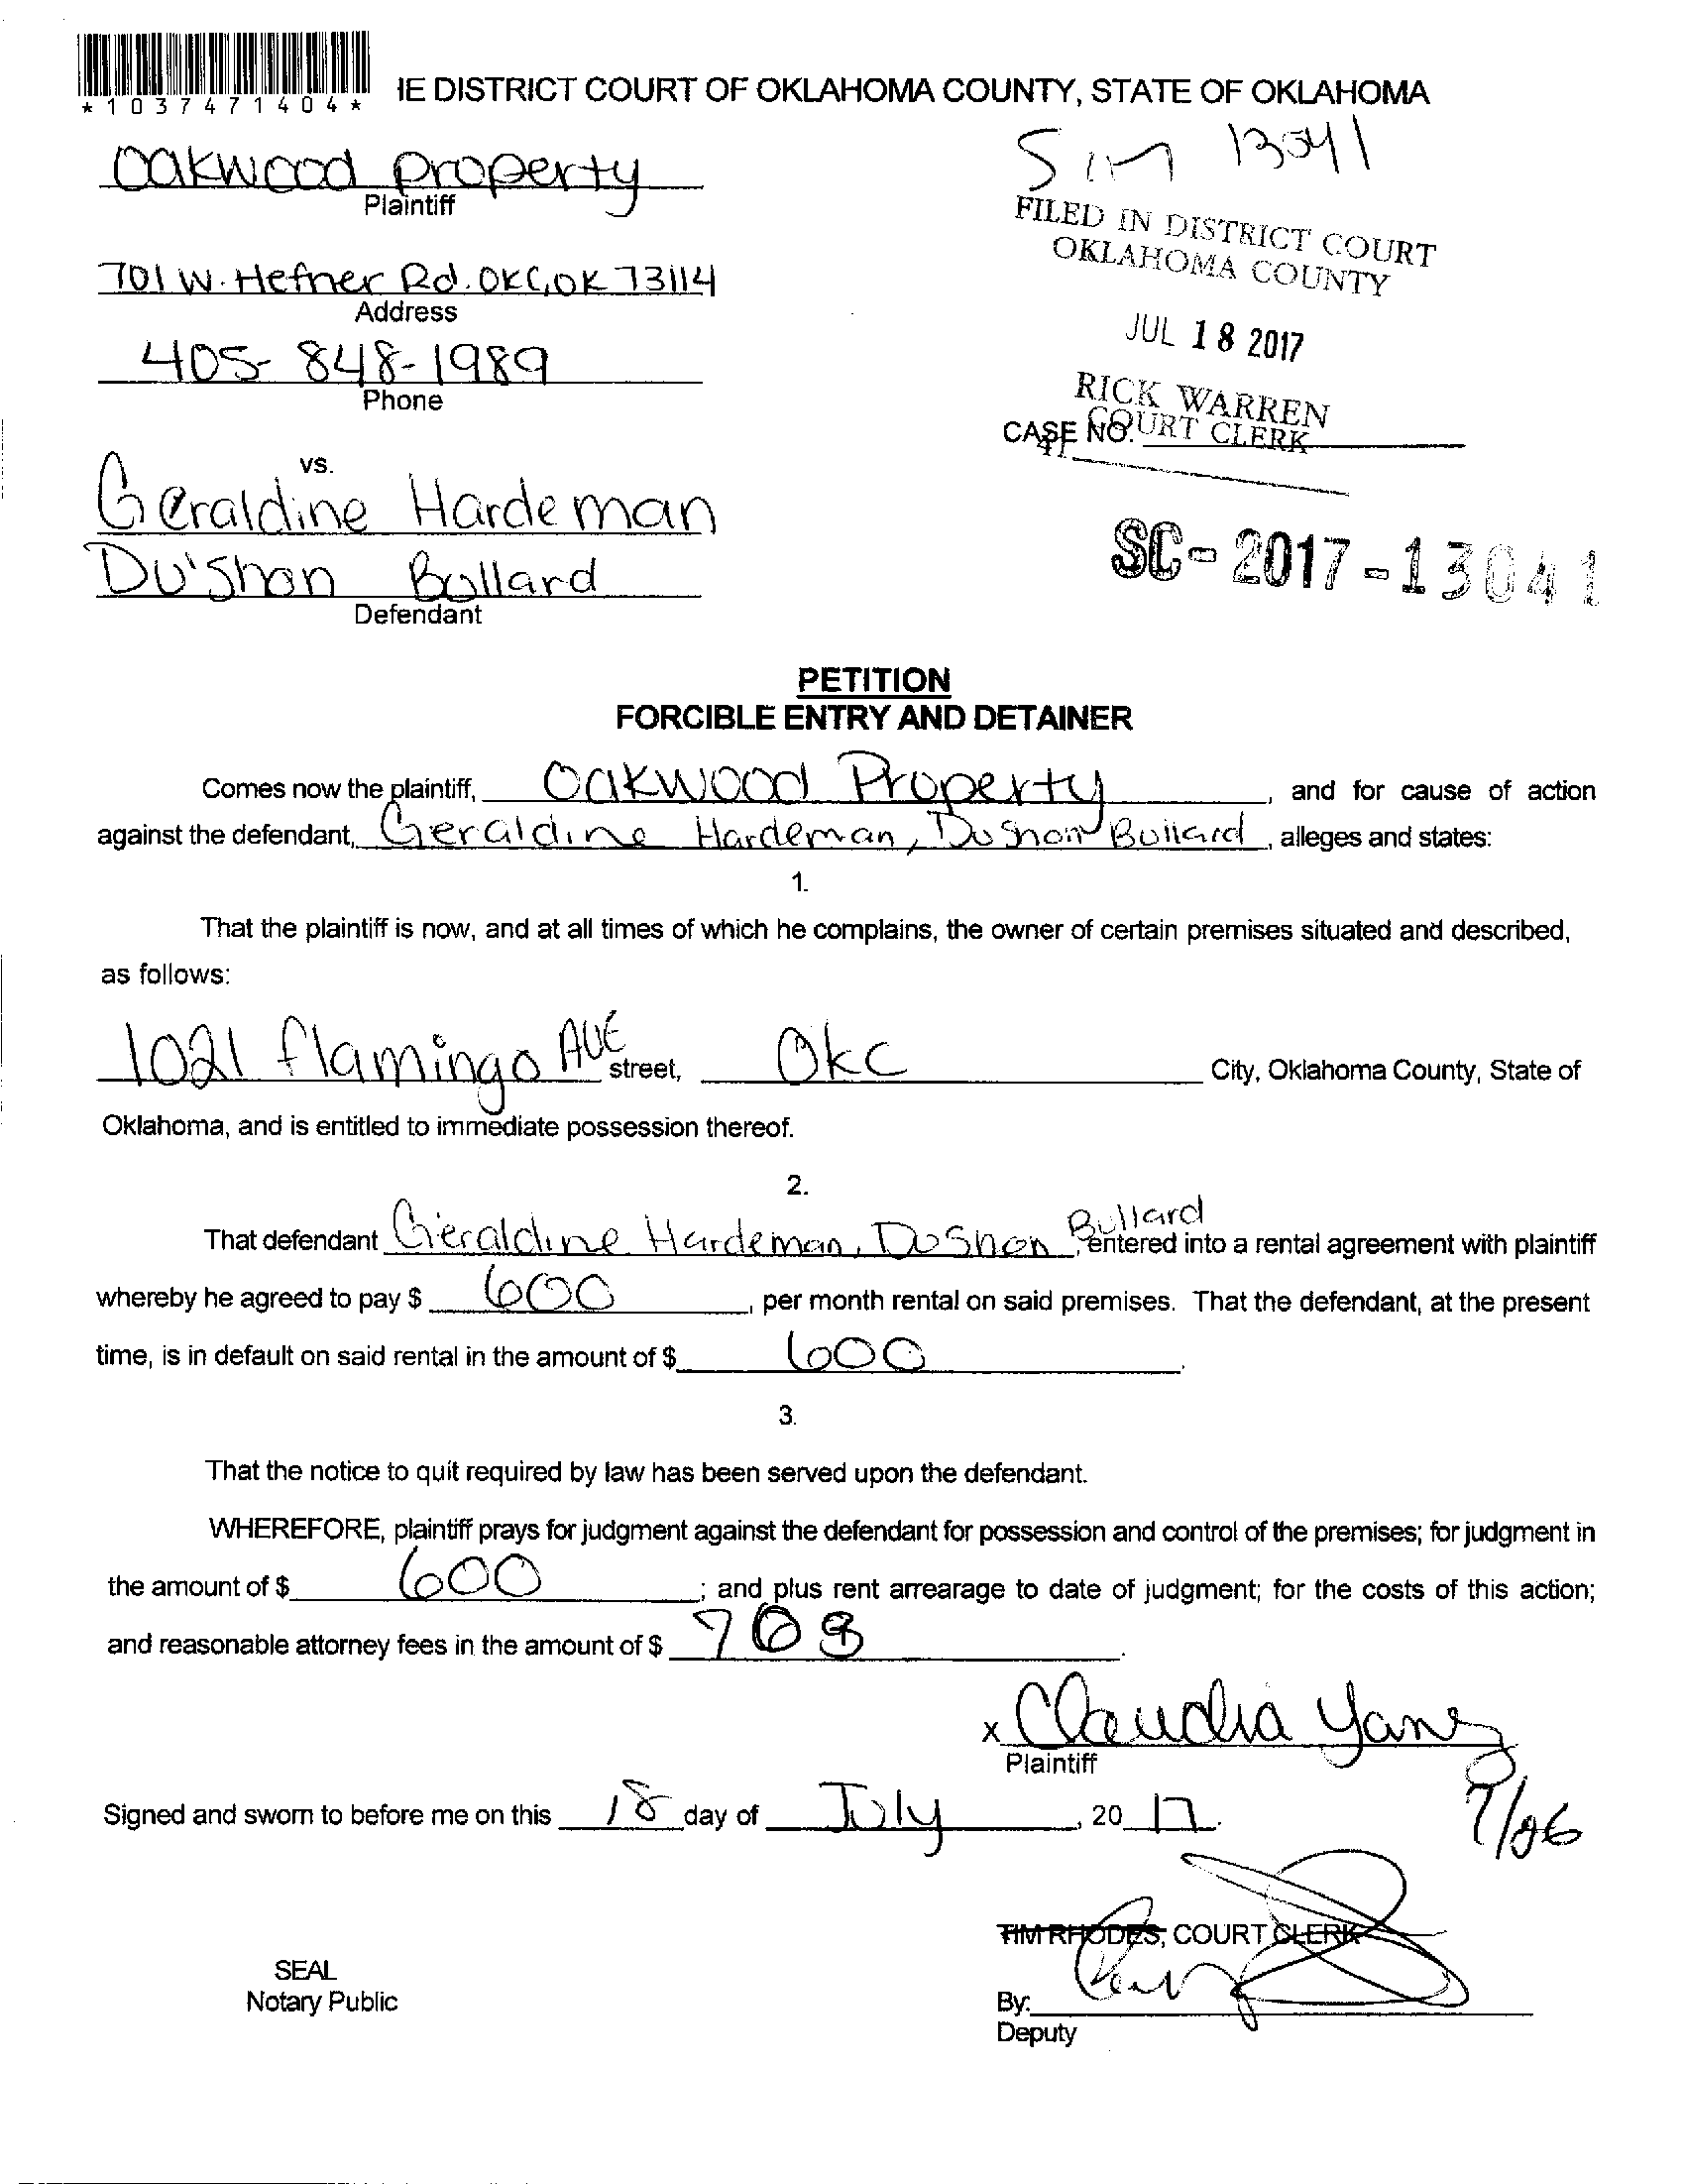 *1037471404*
IE DISTRICT COURT OF OKLAHOMA COUNTY, STATE OF OKLAHOMA
Oakwood property
Plaintiff
701 W. Hefner Rd. OKC, OK 73114
Address
405-848-1989
Phone
vs.
Geraldine Hardeman
Du'Shon Bullard
Defendant
13041
FILED IN DISTRICT COURT
OKLAHOMA COUNTY
JUL 18 2017
RICK WARREN
COURT CLERK
CASE NO.
41
SC-2017-13041
PETITION
FORCIBLE ENTRY AND DETAINER
Comes now the plaintiff, Oakwood Property, and for cause of action
against the defendant, Geraldine Hardeman, Dushon Bullard, alleges and states:
1.
That the plaintiff is now, and at all times of which he complains, the owner of certain premises situated and described,
as follows:
1021 flamingo AVE street, OKC City, Oklahoma County, State of
Oklahoma, and is entitled to immediate possession thereof.
2.
That defendant Geraldine Hardeman, DuShon Bullard, entered into a rental agreement with plaintiff
whereby he agreed to pay $ 600, per month rental on said premises. That the defendant, at the present
time, is in default on said rental in the amount of $ 600.
3.
That the notice to quit required by law has been served upon the defendant.
WHEREFORE, plaintiff prays for judgment against the defendant for possession and control of the premises; for judgment in
the amount of $ 600; and plus rent arrearage to date of judgment; for the costs of this action;
and reasonable attorney fees in the amount of $ 768.
x Claudia Yanez
Plaintiff
Signed and sworn to before me on this 18 day of July, 2017.
7/26
TIM RHODES, COURT CLERK
SEAL
Notary Public
By:
Deputy